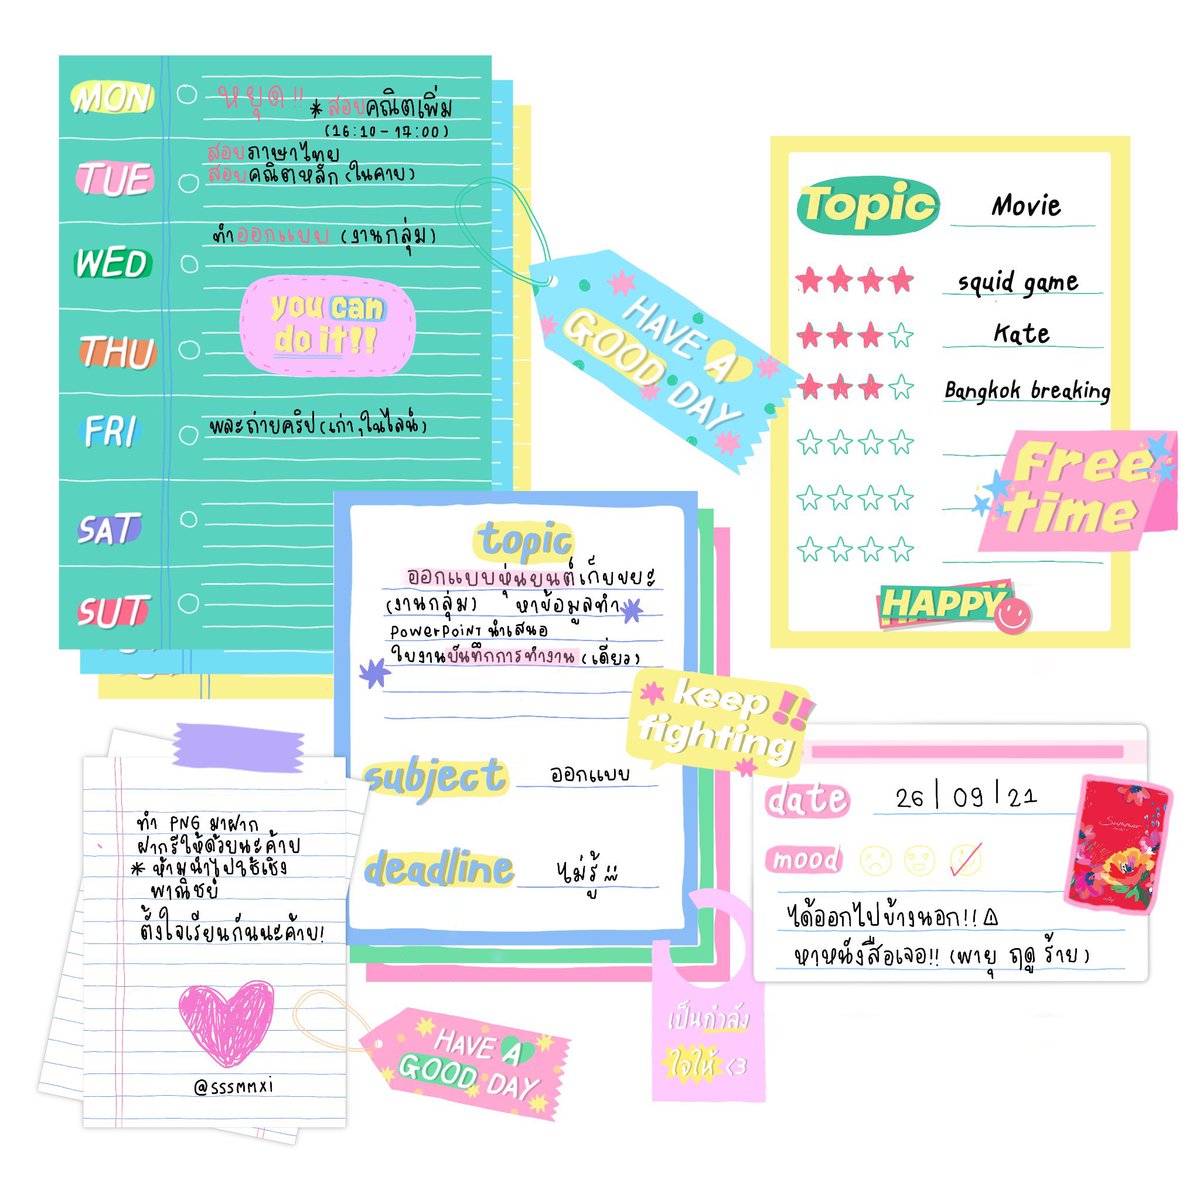 MON
หยุด!!
* สอบคณิตเพิ่ม
(16:10 - 17:00)
TUE
สอบภาษาไทย
สอบคณิตหลัก (ในคาบ)
WED
ทำออกแบบ (งานกลุ่ม)
you can
do it!!
THU
FRI
พละถ่ายคริป (เก่า,ในไลน์)
SAT
SUT
HAVE A
GOOD DAY
Topic
Movie
squid game
Kate
Bangkok breaking
Free
time
HAPPY
topic
ออกแบบหุ่นยนต์เก็บขยะ
(งานกลุ่ม) หาข้อมูลทำ
POWERPOINT นำเสนอ
ใบงานบันทึกการทำงาน (เดี่ยว)
keep
fighting
!!
subject
ออกแบบ
deadline
ไม่รู้
ทำ PNG มาฝาก
ฝากรีให้ด้วยนะค้าบ
* ห้ามนำไปใช้เชิง
พาณิชย์
ตั้งใจเรียนกันนะค้าบ!
@sssmmxi
HAVE A
GOOD DAY
เป็นกำลัง
ใจให้ <3
date
26 | 09 | 21
mood
ได้ออกไปข้างนอก!!
หาหนังสือเจอ!! (พายุ ฤดู ร้าย)
Summer